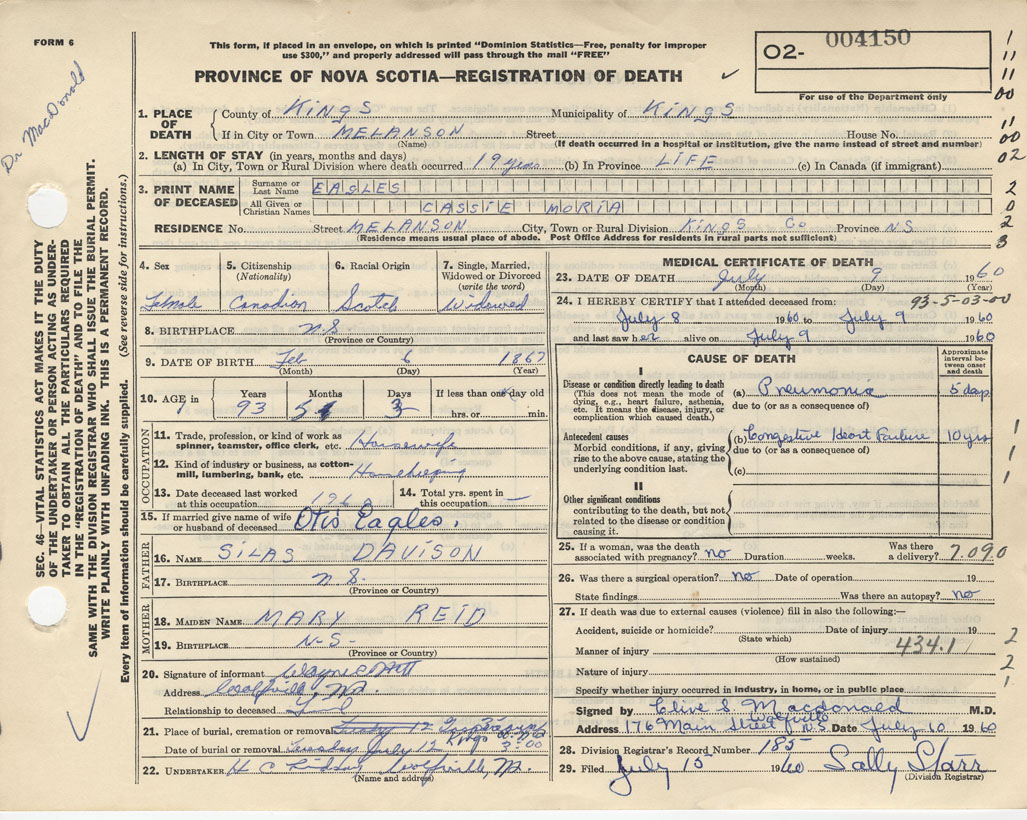 FORM 6
This form, if placed in an envelope, on which is printed "Dominion Statistics—Free, penalty for improper
use $300," and properly addressed will pass through the mail "FREE"
PROVINCE OF NOVA SCOTIA—REGISTRATION OF DEATH
O2- 004150
For use of the Department only
Dr MacDonald
SEC. 46—VITAL STATISTICS ACT MAKES IT THE DUTY
OF THE UNDERTAKER OR PERSON ACTING AS UNDER-
TAKER TO OBTAIN ALL THE PARTICULARS REQUIRED
IN THE "REGISTRATION OF DEATH" AND TO FILE THE
SAME WITH THE DIVISION REGISTRAR WHO SHALL ISSUE THE BURIAL PERMIT.
WRITE PLAINLY WITH UNFADING INK. THIS IS A PERMANENT RECORD.
Every item of information should be carefully supplied. (See reverse side for instructions.)
1. PLACE OF DEATH
County of KINGS Municipality of KINGS
If in City or Town MELANSON Street House No.
(Name) (If death occurred in a hospital or institution, give the name instead of street and number)
2. LENGTH OF STAY (in years, months and days)
(a) In City, Town or Rural Division where death occurred 19 years (b) In Province LIFE (c) In Canada (if immigrant)
3. PRINT NAME OF DECEASED
Surname or Last Name EAGLES
All Given or Christian Names CASSIE MORIA
RESIDENCE No. Street MELANSON City, Town or Rural Division KINGS Co Province N.S
(Residence means usual place of abode. Post Office Address for residents in rural parts not sufficient)
4. Sex 5. Citizenship (Nationality) 6. Racial Origin 7. Single, Married, Widowed or Divorced (write the word)
Female Canadian Scotch Widowed
8. BIRTHPLACE N.S
(Province or Country)
9. DATE OF BIRTH Feb 6 1867
(Month) (Day) (Year)
10. AGE in Years Months Days If less than one day old
93 5 3 hrs. or min.
OCCUPATION
11. Trade, profession, or kind of work as spinner, teamster, office clerk, etc. Housewife
12. Kind of industry or business, as cotton-mill, lumbering, bank, etc. Homekeeping
13. Date deceased last worked at this occupation 1960 14. Total yrs. spent in this occupation —
15. If married give name of wife or husband of deceased Otis Eagles.
FATHER
16. NAME SILAS DAVISON
17. BIRTHPLACE N.S.
(Province or Country)
MOTHER
18. MAIDEN NAME MARY REID
19. BIRTHPLACE N-S-
(Province or Country)
20. Signature of informant Wayne
Address Wolfville, N.S.
Relationship to deceased
21. Place of burial, cremation or removal
Date of burial or removal Tuesday July 12 3:00
22. UNDERTAKER H C Lindsay Wolfville, N.S.
(Name and address)
MEDICAL CERTIFICATE OF DEATH
23. DATE OF DEATH July 9 1960
(Month) (Day) (Year)
24. I HEREBY CERTIFY that I attended deceased from: 93-5-03-00
July 8 1960 to July 9 1960
and last saw her alive on July 9 1960
CAUSE OF DEATH
Approximate interval between onset and death
I
Disease or condition directly leading to death (a) Pneumonia 5 days
(This does not mean the mode of dying, e.g., heart failure, asthenia, etc. It means the disease, injury, or complication which caused death.)
due to (or as a consequence of)
Antecedent causes (b) Congestive Heart Failure 10 yrs
Morbid conditions, if any, giving rise to the above cause, stating the underlying condition last.
due to (or as a consequence of)
(c)
II
Other significant conditions
contributing to the death, but not related to the disease or condition causing it.
25. If a woman, was the death associated with pregnancy? no Duration weeks. Was there a delivery? 7.090
26. Was there a surgical operation? no Date of operation 19
State findings Was there an autopsy? no
27. If death was due to external causes (violence) fill in also the following:—
Accident, suicide or homicide? Date of injury 19
(State which)
Manner of injury 434.1
(How sustained)
Nature of injury
Specify whether injury occurred in industry, in home, or in public place
Signed by Clive S. Macdonald M.D.
Address 176 Main Street Wolfville N.S Date July 10 1960
28. Division Registrar's Record Number 185
29. Filed July 15 1960 Sally Starr
(Division Registrar)
1
11
11
00
11
00
02
2
0
2
3
1
1
1
2
2
1